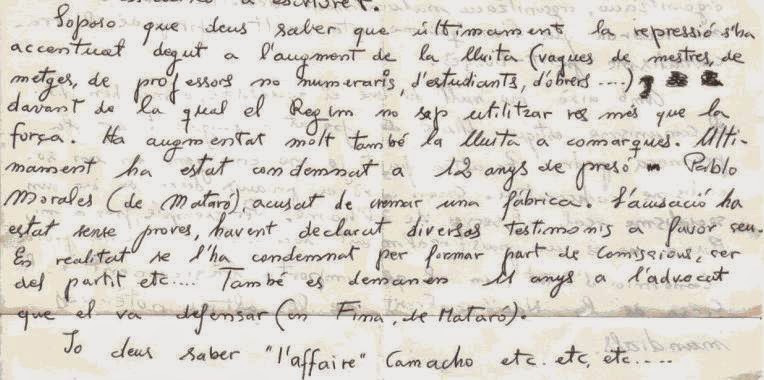 a escriure't.
Soposo que deus saber que últimament la repressió s'ha
accentuat degut a l'augment de la lluita (vagues de mestres, de
metges, de professors no numeraris, d'estudiants, d'obrers ....),
davant de la qual el Regim no sap utilitzar res més que la
força. Ha augmentat molt també la lluita a comarques. Ulti-
mament ha estat condemnat a 12 anys de presó Pablo
Morales (de Mataró) acusat de cremar una fàbrica. L'acusació ha
estat sense proves, havent declarat diversos testimonis a favor seu.
En realitat se l'ha condemnat per formar part de Comissions, ser
del partit etc.... També es demanen 11 anys a l'advocat
que el va defensar (en Fina, de Mataró).
Jo deus saber "l'affaire" Camacho etc. etc, etc....